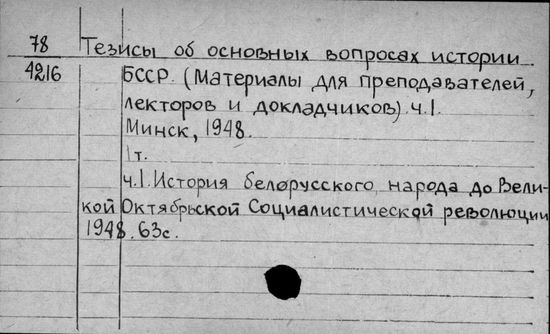 78 Тезисы об основных вопросах истории
4216 БССР. (Материалы для преподавателей,
лекторов и докладчиков). ч.1.
Минск, 1948.
1т.
ч.1. История белорусского народа до Вели-
кой Октябрьской Социалистической революции
1948. 63с.